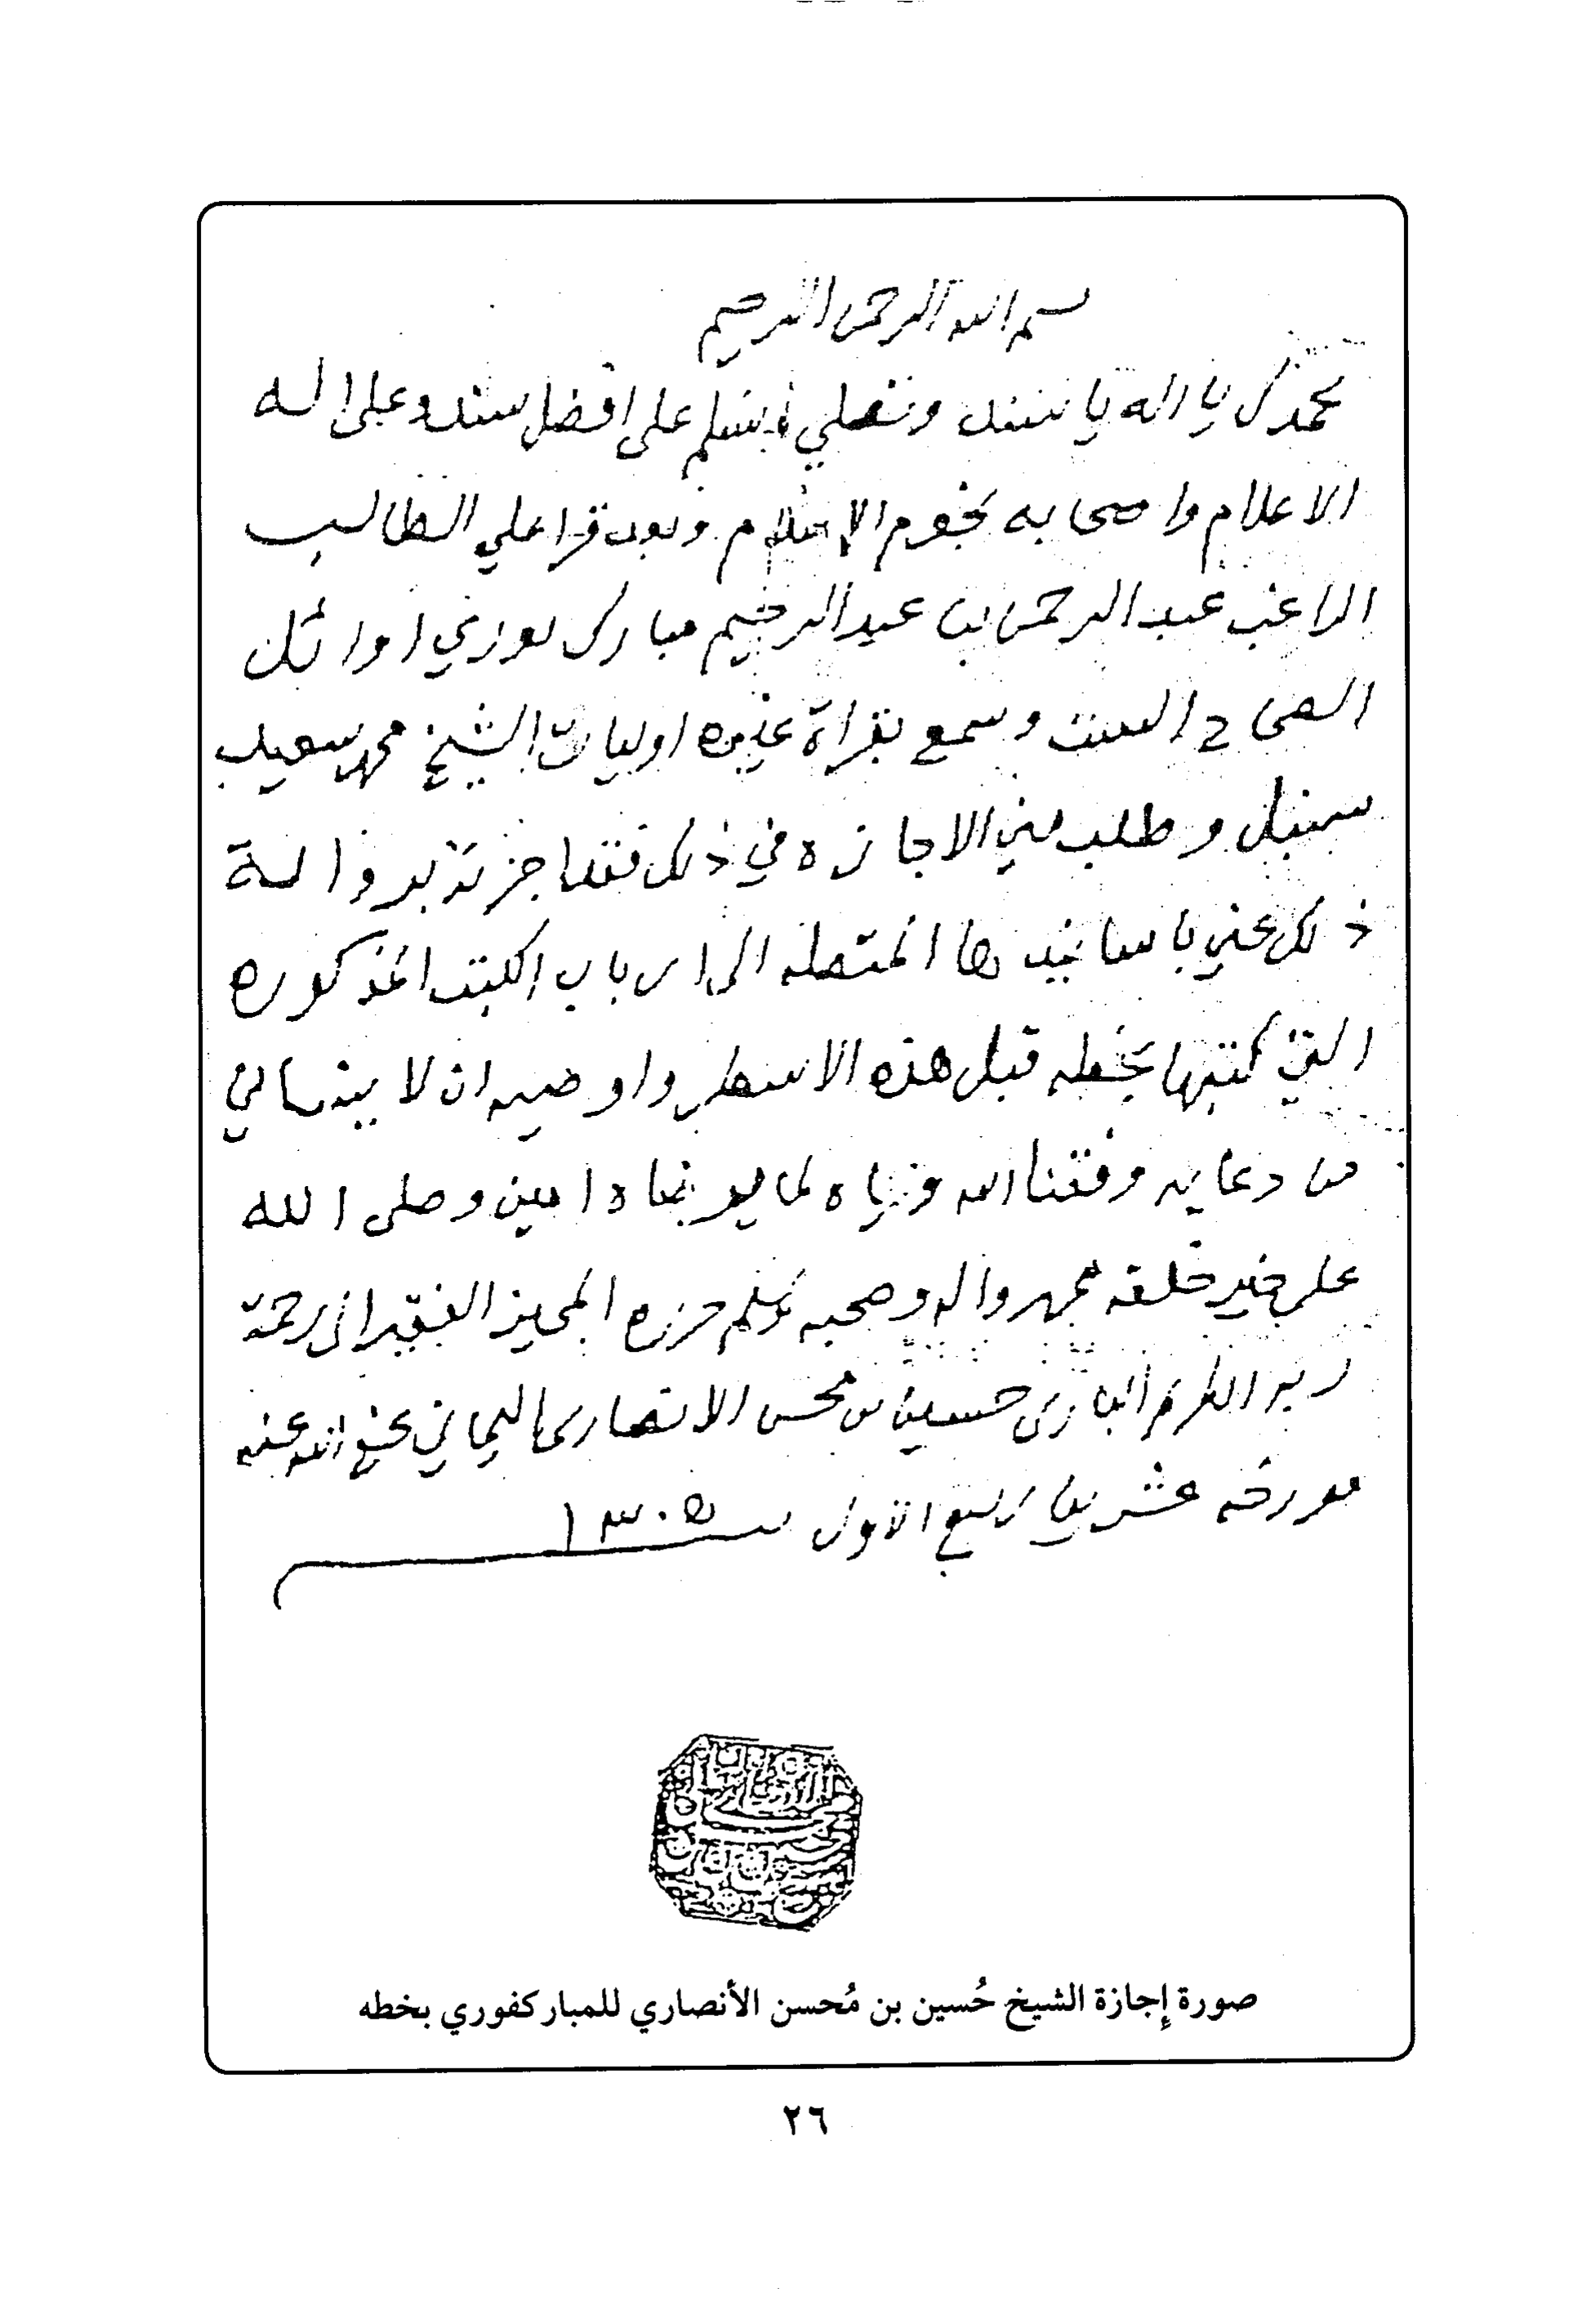 بسم الله الرحمن الرحيم
نحمدك يا اله يا سند ونصلي ونسلم على افضل سند وعلى اله
الاعلام واصحابه نجوم الإسلام وبعد قرا علي الطالب
الراغب عبدالرحمن بن عبدالرحيم مباركبوري اوائل
الصحاح الست وسمع بقراة غيره اوليات الشيخ محمد سعيد
سنبل وطلب مني الاجازه في ذلك فقد اجزته برواية
ذلك عني باسانيدها المتصله الى ارباب الكتب المذكوره
التي كتبها بخطه قبل هذه الاسطر واوصيه ان لا ينساني
من دعايه وفقنا الله واياه لما يرضاه امين وصلى الله
على خير خلقه محمد واله وصحبه وسلم حرره المجيز الفقير الى رحمة
ربه الكريم الباري حسين بن محسن الانصاري اليماني عفي الله عنه
مورخه عشرين ربيع الاول سـ ١٣٠٥
صورة إجازة الشيخ حُسين بن مُحسن الأنصاري للمباركفوري بخطه
٢٦